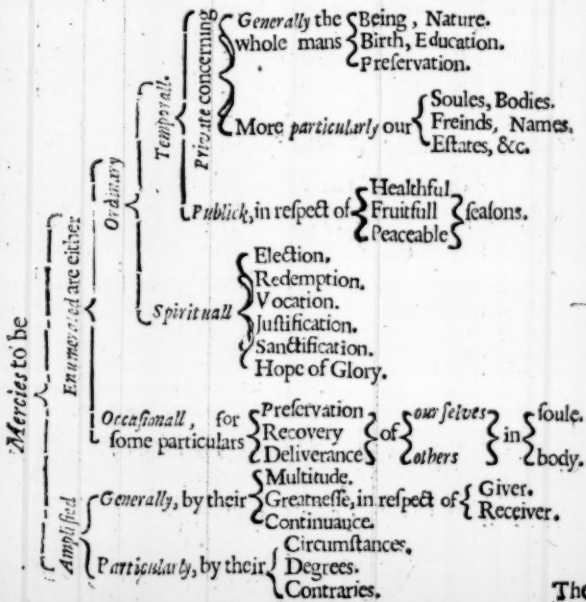 Mercies to be
Enumerated are either
Ordinary
Temporall.
Private concerning
Generally the
whole mans
Being, Nature.
Birth, Education.
Preſervation.
More particularly our
Soules, Bodies.
Freinds, Names.
Eſtates, &c.
Publick, in reſpect of
Healthful
Fruitfull
Peaceable
ſeaſons.
Spirituall
Election.
Redemption.
Vocation.
Juſtification.
Sanctification.
Hope of Glory.
Occaſionall, for
ſome particulars
Preſervation
Recovery
Deliverance
of
our ſelves
others
in
ſoule.
body.
Amplified
Generally, by their
Multitude.
Greatneſſe, in reſpect of
Continuance.
Giver.
Receiver.
Particularly, by their
Circumſtances.
Degrees.
Contraries.
The